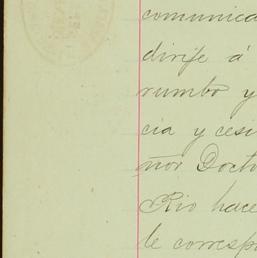 comunica
dirije á
rumbo y
cia y cesi
ñor Docto
Rio hace
de corresp